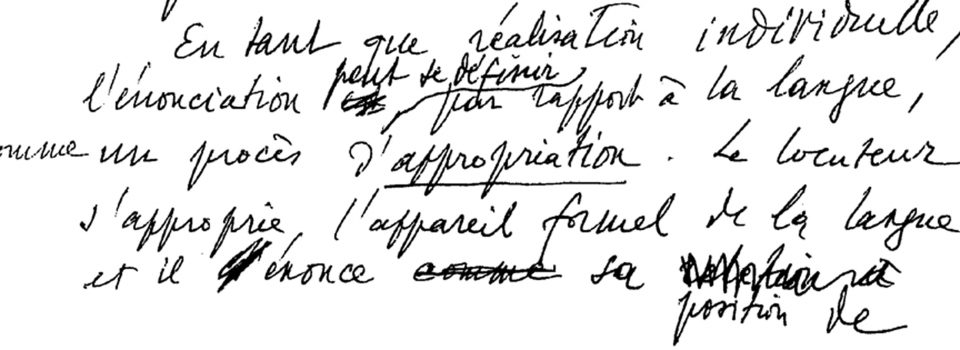 En tant que réalisation individuelle,
peut se définir,
l'énonciation par rapport à la langue,
comme un procès d'appropriation. Le locuteur
s'approprie l'appareil formel de la langue
et il énonce comme sa
position de